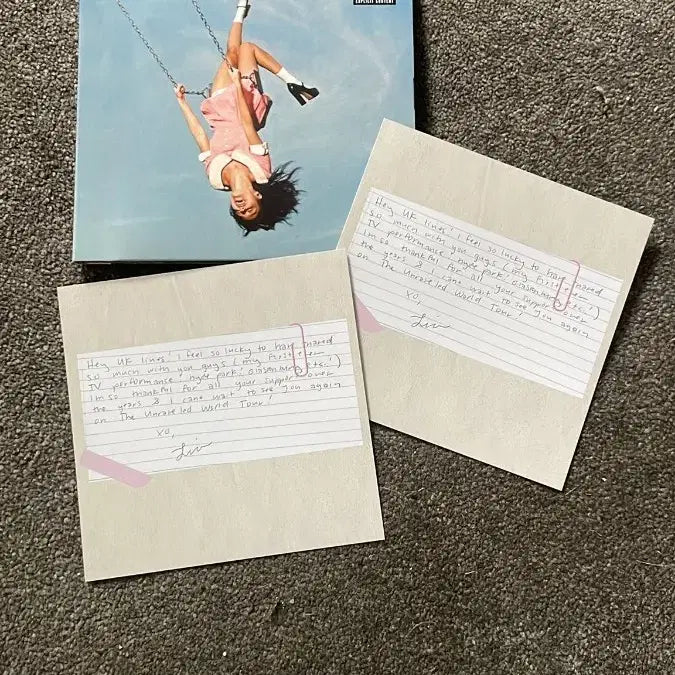 EXPLICIT CONTENT
Hey UK livies! I feel so lucky to have shared
so much with you guys (my first ever
TV performance! hyde park! Glastonbury! etc!)
Im so thankful for all your support over
the years & I cant wait to see you again
on The Unraveled World Tour!
xo,
Liv
Hey UK livies! I feel so lucky to have shared
so much with you guys (my first ever
TV performance! hyde park! Glastonbury! etc!)
Im so thankful for all your support over
the years & I cant wait to see you again
on The Unraveled World Tour!
xo,
Liv